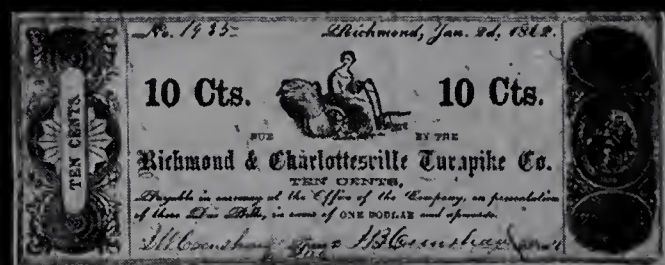 No. 1935 Richmond, Jan. 2d, 1862.
10 Cts. 10 Cts.
TEN CENTS
DUE BY THE
Richmond & Charlottesville Turnpike Co.
TEN CENTS,
Payable in currency at the Office of the Company, on presentation
of these Due Bills, in sums of ONE DOLLAR and upwards.